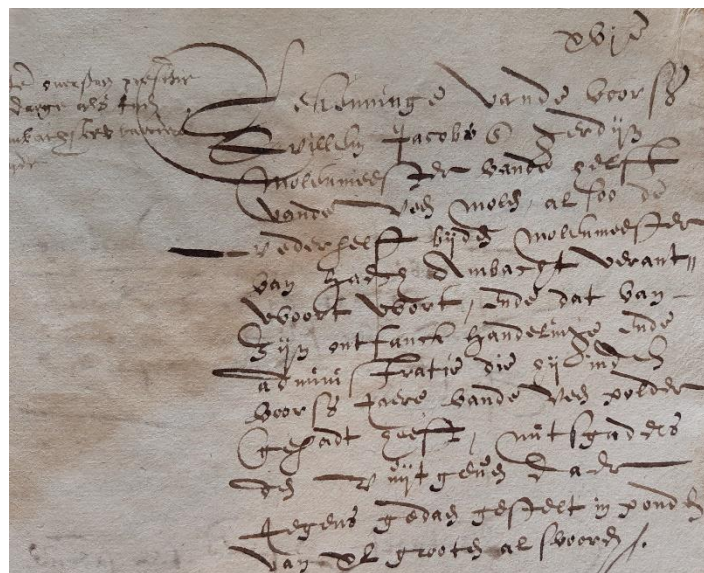 xvije
Rekeninge vande voorss
Willem Jacobs Gerdijn
Molenmeester vande helft
vande ven molen, alsoo de
wederhelft bijden Molenmeester
van Ambacht verant„
woort wort, ende dat van
zijn ontfanck handelinge ende
administratie die hij inden
voorss jaere vande ven polder
gehadt heeft, mitsgaders
den uijtgeven daer
jegens gedaen gestelt in ponden
van xl grooten als vooren